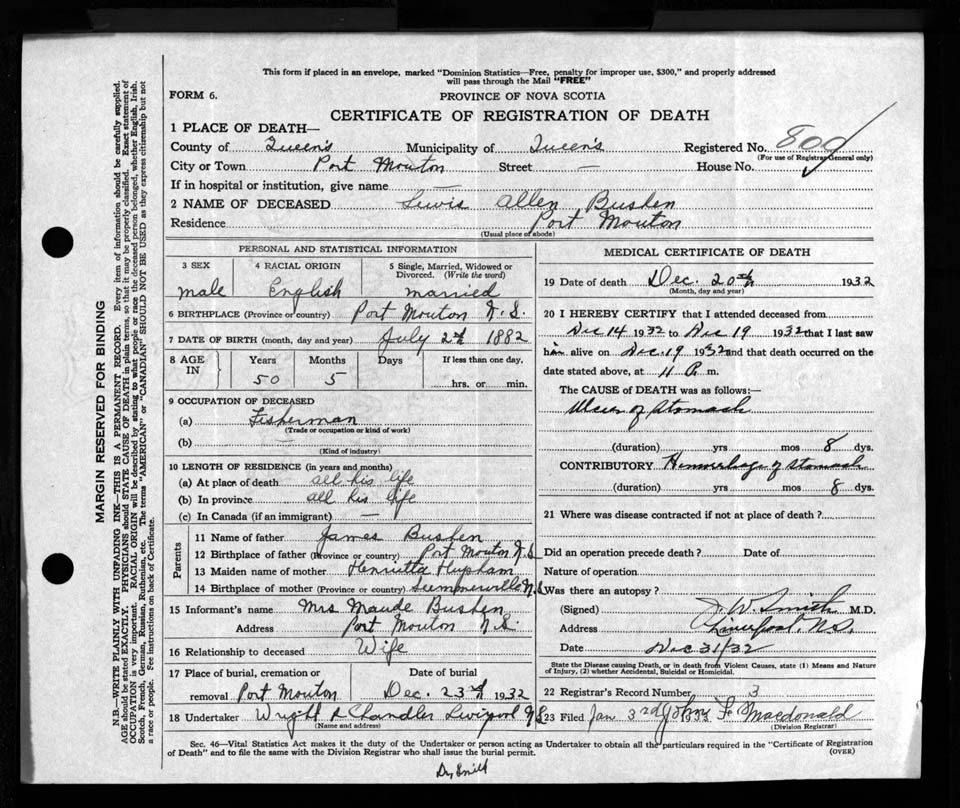 This form if placed in an envelope, marked "Dominion Statistics—Free, penalty for improper use, $300," and properly addressed
will pass through the Mail "FREE"
FORM 6.
PROVINCE OF NOVA SCOTIA
CERTIFICATE OF REGISTRATION OF DEATH
1 PLACE OF DEATH—
County of Queen's Municipality of Queen's Registered No. 804
(For use of Registrar General only)
City or Town Port Mouton Street — House No.
If in hospital or institution, give name —
2 NAME OF DECEASED Lewis Allen Bushen
Residence Port Mouton
(Usual place of abode)
PERSONAL AND STATISTICAL INFORMATION
3 SEX 4 RACIAL ORIGIN 5 Single, Married, Widowed or
Divorced. (Write the word)
male English married
6 BIRTHPLACE (Province or country) Port Mouton N.S.
7 DATE OF BIRTH (month, day and year) July 2nd 1882
8 AGE IN Years Months Days If less than one day,
50 5 hrs. or min.
9 OCCUPATION OF DECEASED
(a) Fisherman
(Trade or occupation or kind of work)
(b) —
(Kind of industry)
10 LENGTH OF RESIDENCE (in years and months)
(a) At place of death all his life
(b) In province all his life
(c) In Canada (if an immigrant) —
Parents
11 Name of father James Bushen
12 Birthplace of father (Province or country) Port Mouton N.S
13 Maiden name of mother Henrietta Hupham
14 Birthplace of mother (Province or country) Summerville N.S
15 Informant's name Mrs Maude Bushen
Address Port Mouton N.S.
16 Relationship to deceased Wife
17 Place of burial, cremation or Date of burial
removal Port Mouton Dec. 23rd 1932
18 Undertaker Wright & Chandler Liverpool N.S
(Name and address)
MEDICAL CERTIFICATE OF DEATH
19 Date of death Dec. 20th 1932
(Month, day and year)
20 I HEREBY CERTIFY that I attended deceased from
Dec 14 1932 to Dec 19 1932 that I last saw
him alive on Dec. 19 1932 and that death occurred on the
date stated above, at 11 P. m.
The CAUSE of DEATH was as follows:—
Ulcer of Stomach
(duration) yrs mos 8 dys.
CONTRIBUTORY Hemorrhage of Stomach
(duration) yrs mos 8 dys.
21 Where was disease contracted if not at place of death?
Did an operation precede death? Date of
Nature of operation
Was there an autopsy?
(Signed) J. W. Smith M.D.
Address Liverpool N.S.
Date Dec 31/32
State the Disease causing Death, or in death from Violent Causes, state (1) Means and Nature
of Injury, (2) whether Accidental, Suicidal or Homicidal.
22 Registrar's Record Number 3
23 Filed Jan 3rd 1933 John F. Macdonald
(Division Registrar)
Sec. 46—Vital Statistics Act makes it the duty of the Undertaker or person acting as Undertaker to obtain all the particulars required in the "Certificate of Registration
of Death" and to file the same with the Division Registrar who shall issue the burial permit. (OVER)
Dr. Smith
MARGIN RESERVED FOR BINDING
N.B.—WRITE PLAINLY WITH UNFADING INK—THIS IS A PERMANENT RECORD. Every item of information should be carefully supplied.
AGE should be stated EXACTLY. PHYSICIANS should STATE CAUSE OF DEATH in plain terms, so that it may be properly classified. Exact statement of
OCCUPATION is very important. RACIAL ORIGIN will be described by stating to what people or race the deceased person belonged, whether English, Irish,
Scotch, French, German, Russian, Ruthenian, etc. The terms "AMERICAN" or "CANADIAN" SHOULD NOT BE USED as they express citizenship but not
a race or people. See instructions on back of Certificate.